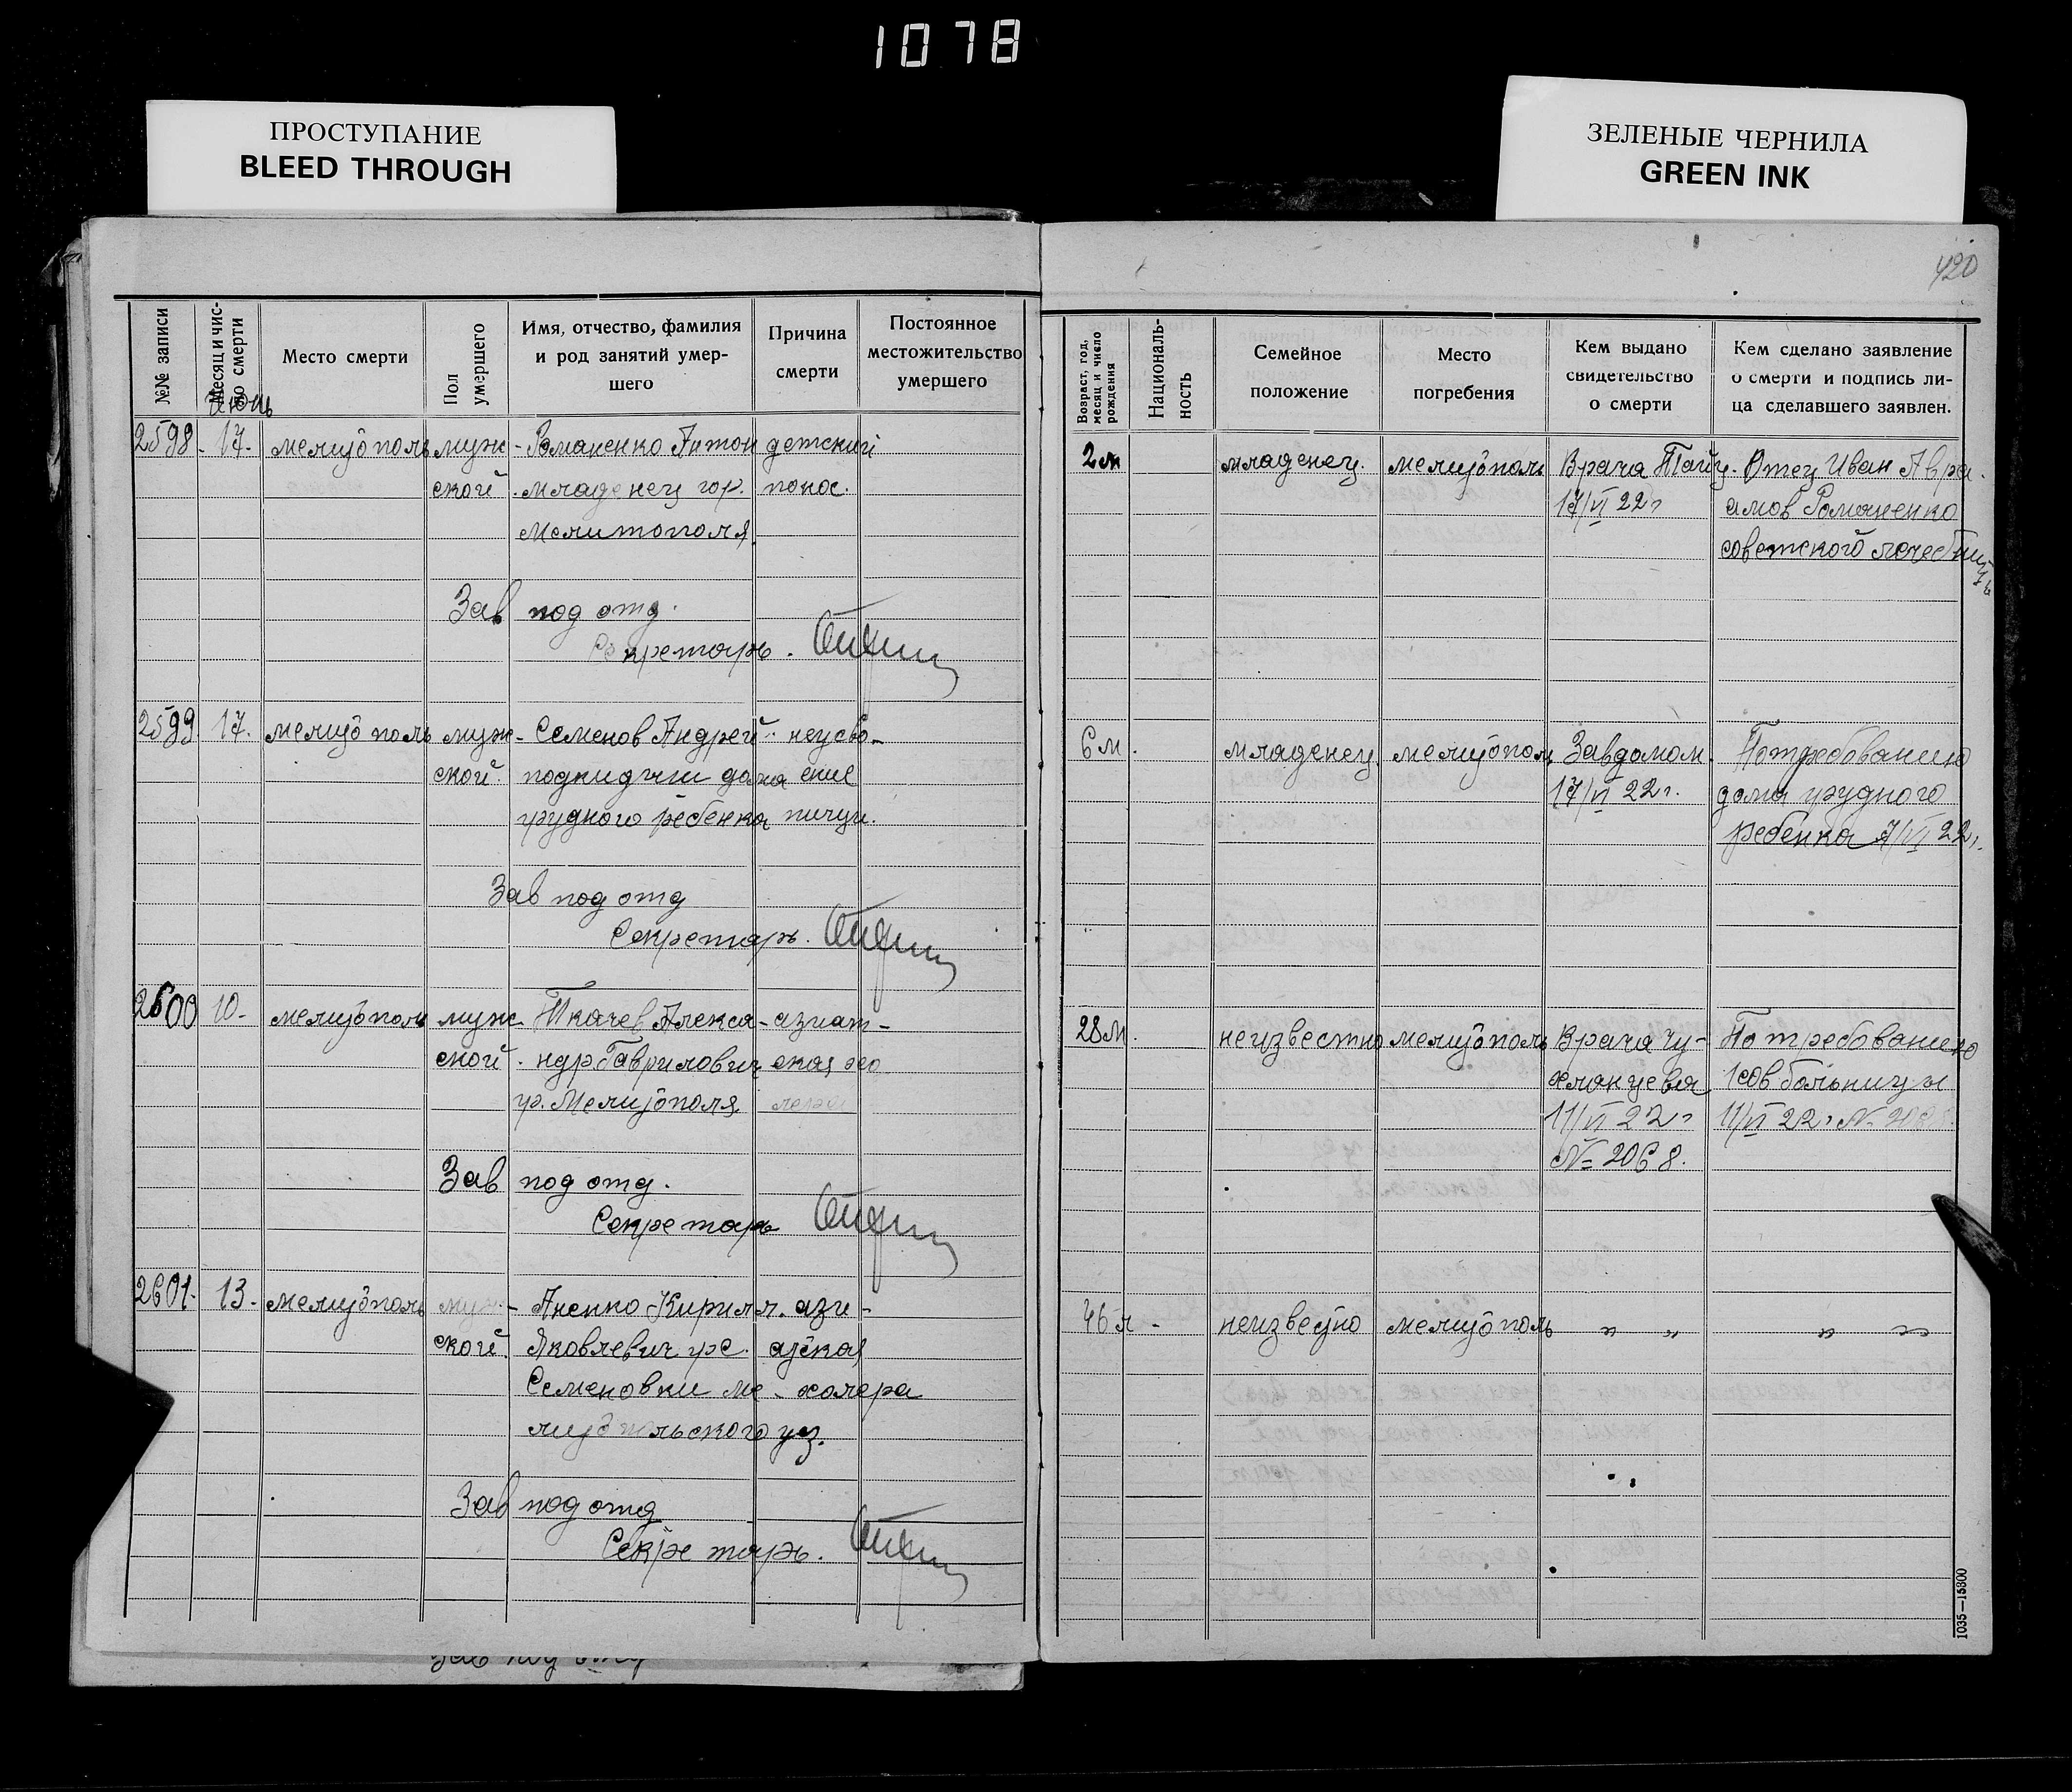 1078
ПРОСТУПАНИЕ
BLEED THROUGH
ЗЕЛЕНЫЕ ЧЕРНИЛА
GREEN INK
420
№№ записи
Месяц и чис-
ло смерти
Июнь
Место смерти
Пол
умершего
Имя, отчество, фамилия
и род занятий умер-
шего
Причина
смерти
Постоянное
местожительство
умершего
Возраст, год,
месяц и число
рождения
Националь-
ность
Семейное
положение
Место
погребения
Кем выдано
свидетельство
о смерти
Кем сделано заявление
о смерти и подпись ли-
ца сделавшего заявлен.
2598. 17. Мелитополь муж- Романенко Антон детский
ской младенец гор. понос.
Мелитополя.
2м младенец. Мелитополь Врача Отец Иван Авра-
17/VI 22г амов Романенко
советской лечебницы
Зав под отд.
Секретарь.
2599. 17. Мелитополь муж- Семенов Андрей неусво-
ской. подкидыш дома ение
грудного ребенка пищи.
6м. младенец Мелитополь Завдомом. По требованию
17/VI 22г. дома грудного
ребенка 17/VI 22г.
Зав под отд
Секретарь.
2600 10. Мелитополь муж Ткачев Алекса- азиат-
ской. ндр Гаврилович ская хо
гр. Мелитополя лера
28л. неизвестно Мелитополь Врача По требованию
1 сов больницы
11/VI 22г 11/VI 22г №
№ 2068.
Зав под отд.
Секретарь
2601. 13. Мелитополь муж- Яненко Кирилл. ази-
ской. Яковлевич гр с. атская
Семеновки ме- холера
литопольского уз.
46л - неизвестно Мелитополь " " " "
Зав под отд
Секретарь.
1035—15800
Зав под отд